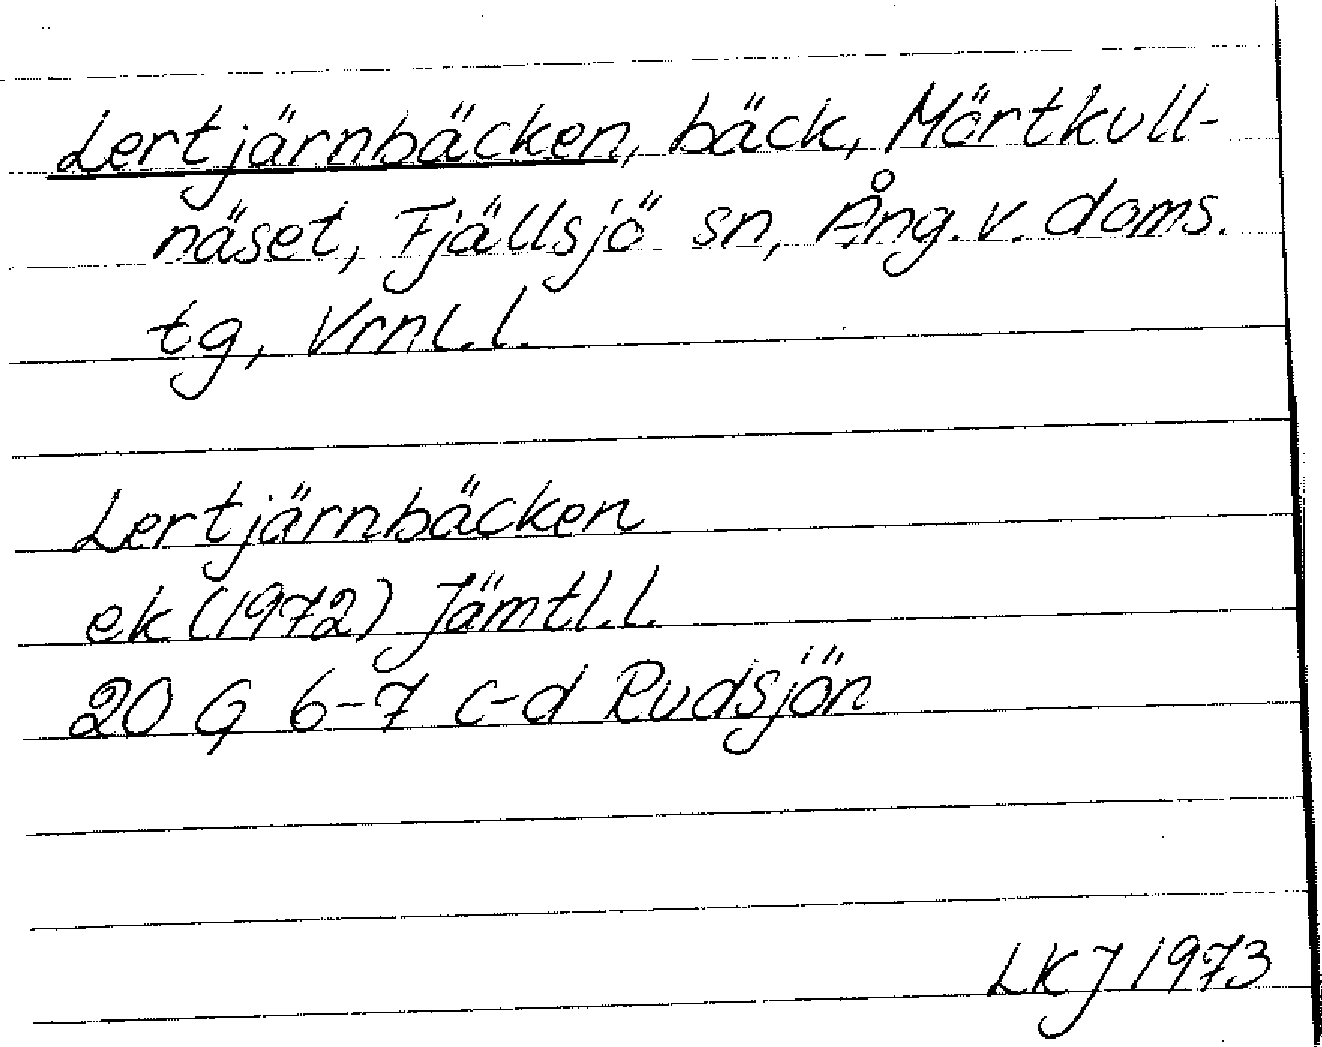 Lertjärnbäcken, bäck, Mörtkull-
näset, Fjällsjö sn, Ång. v. doms.
tg, Vrnl. l.
Lertjärnbäcken
ek (1972) Jämtl. l.
20 G 6-7 c-d Rudsjön
LKJ 1973